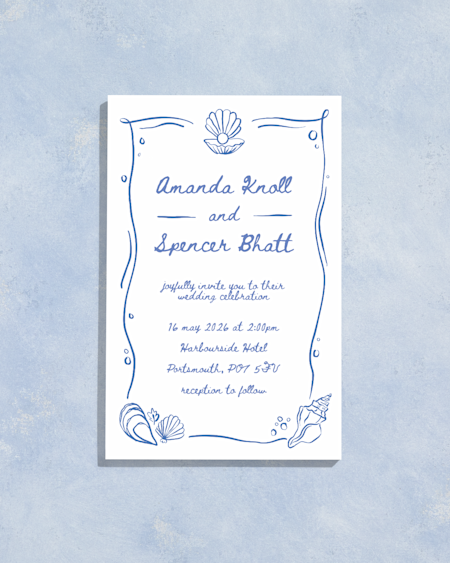 Amanda Knoll
and
Spencer Bhatt
joyfully invite you to their
wedding celebration
16 may 2026 at 2:00pm
Harbourside Hotel
Portsmouth, PO7 5FV
reception to follow